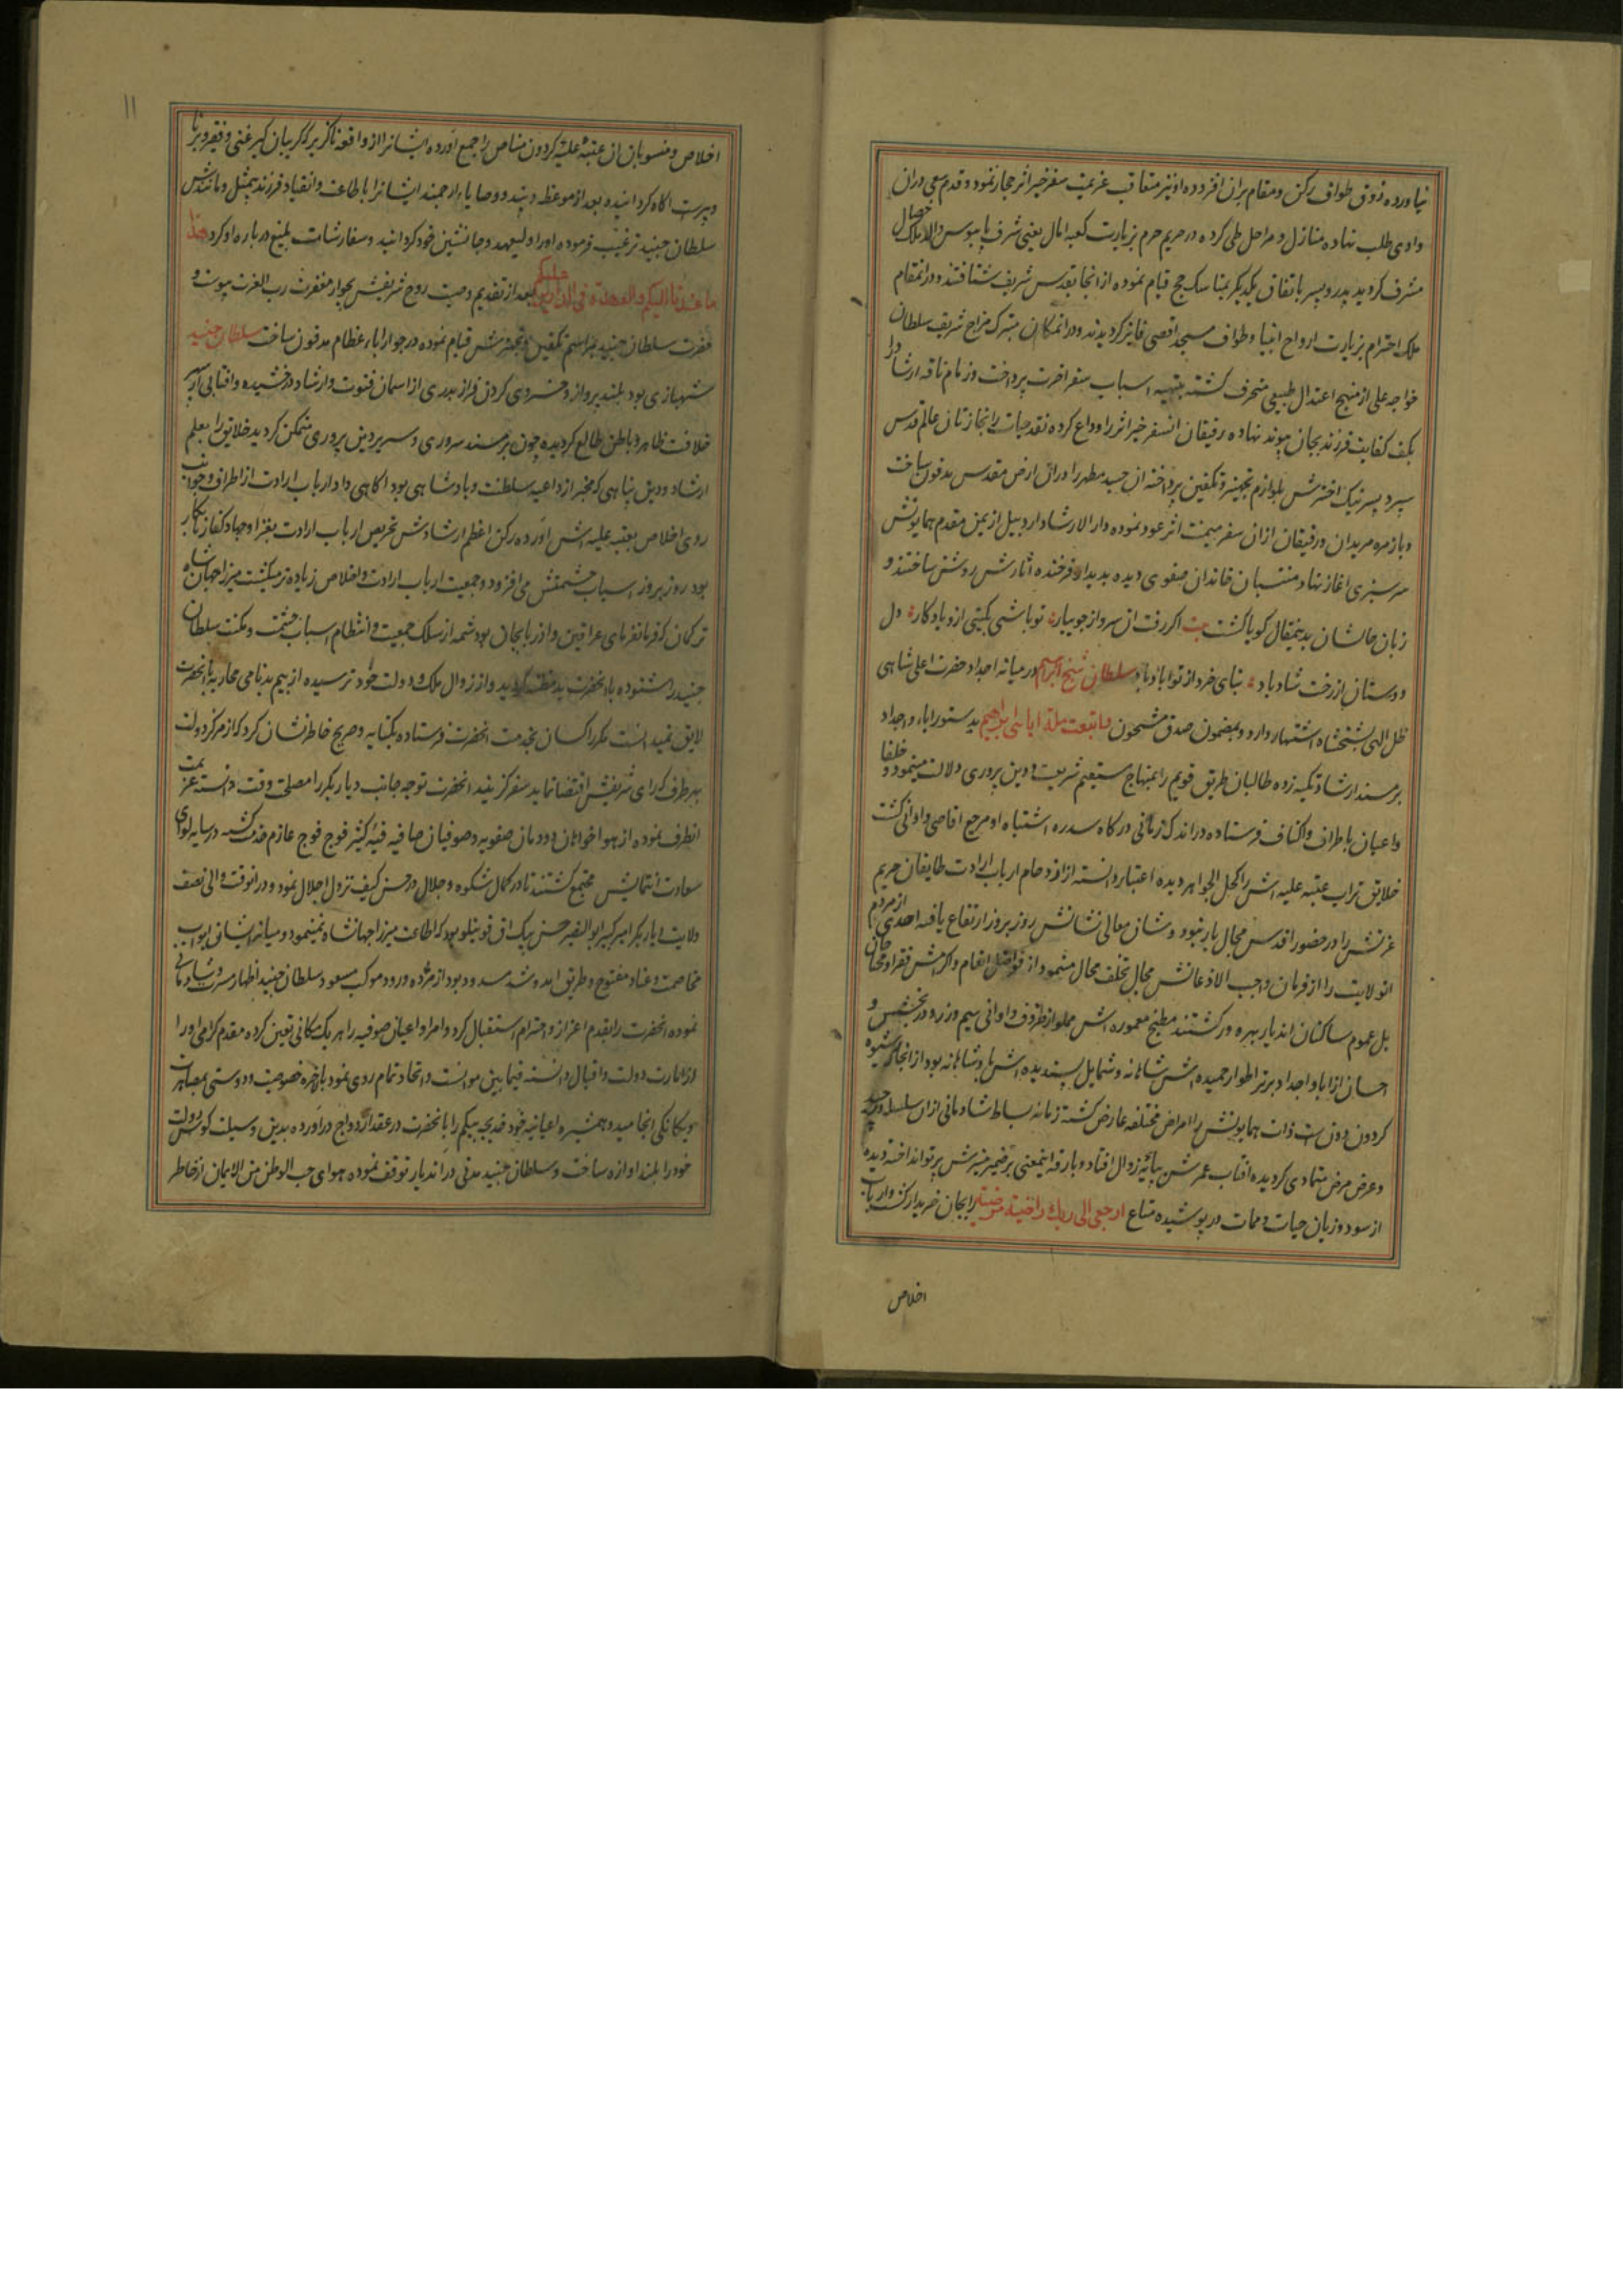 نیاورده ذوق طواف رکن و مقام بران افزوده او نیز متعاقب عزیمت سفر خیر اثر حجاز نمود و قدم سعی دران
وادی طلب نهاده منازل و مراحل طی کرده در حریم حرم بزیارت کعبه امال یعنی شرف پابوس والد ملک خصال
مشرف کردید پدر و پسر باتفاق یکدیکر بمناسک حج قیام نموده از انجا بقدس شریف شتافتند و درانمقام
ملک احترام بزیارت ارواح انبیا و طواف مسجد اقصی فایز کردیدند و درانمکان متبرک مزاج شریف سلطان
خواجه علی از منهج اعتدال طبیعی منحرف کشته بتهیه اسباب سفر اخرت پرداخت و زمام ناقه ارشاد را
بکف کفایت فرزند بجان پیوند نهاده رفیقان انسفر خیر اثر را وداع کرده نقد حیات را بخازنان عالم قدس
سپرد پسر نیک اخترش بلوازم تجهیز و تکفین پرداخته ان جسد مطهر را دران ارض مقدس مدفون ساخت
و بازمره مریدان و رفیقان ازان سفر میمنت اثر عود نموده دار الارشاد اردبیل از یمن مقدم همایونش
سرسبزی اغاز نهاد منتسبان خاندان صفوی دیده بدیدار فرخنده اثارش روشن ساختند و
زبان حالشان بدینمقال کویا کشت بیت اکر رفت ان سرو از جویبار تو باشی بکیتی ازو یادکار دل
دوستان از رخت شاد باد بنای خرد از تو اباد باد سلطان شیخ ابراهیم در میانه اجداد حضرت اعلی شاهی
ظل الهی بشیخشاه اشتهار دارد و بمضمون صدق مشحون فاتبعت ملة ابائی ابراهیم بدستور اباء و اجداد
بر مسند ارشاد تکیه زده طالبان طریق قویم را بمنهاج مستقیم شریعت و دین پروری دلالت مینمود و خلفا
و اعیان باطراف و اکناف فرستاده در اندک زمانی درکاه سدره اشتباه او مرجع اقاصی و ادانی کشت
خلایق تراب عتبه علیه اش را کحل الجواهر دیده اعتبار دانسته از ازدحام ارباب ارادت طایفان حریم
عزتش را در حضور اقدس مجال بار نبود و شان معالی نشانش روز بروز ارتفاع یافته احدی از مردم
انولایت را از فرمان واجب الاذعانش مجال تخلف محال مینمود از فواضل انعام و اکرامش فقرا و محتاجان
بل عموم ساکنان اندیار بهره ور کشتند مطبخ معموره اش مملو از ظروف و اوانی سیم و زر و در بخشش و
احسان از ابا و اجداد برتر اطوار حمیده اش شاهانه و شمایل پسندیده اش پادشاهانه بود از انجا که شیوه
کردون دون است ذات همایونش را امراض مختلفه عارض کشته زمانه بساط شادمانی ازان سلسله درچید
و عرض مرض متمادی کردیده افتاب عمرش بپایه زوال افتاد و بارقه اینمعنی بر ضمیر منیرش پرتو انداخته دیده
از سود و زیان حیات و ممات در پوشیده متاع ارجعی الی ربک راضیة مرضیة را بجان خریدار کشت و ارباب
اخلاص
۱۱
اخلاص و منسوبان ان عتبه علیه کردون مناص را جمع اورده ایشانرا از واقعه ناکزیر که کریبان کیر غنی و فقیر و برنا
و پیرست اکاه کردانیده بعد از موعظه و پند و وصایاء ارجمند ایشانرا باطاعت و انقیاد فرزند بیمثل و مانندش
سلطان جنید ترغیب فرموده او را ولیعهد و جانشین خود کردانید و سفارشات بلیغ درباره او کرد هذا
ما عهدنا الیکم و العهدة فی الدارین علیکم بعد از تقدیم وصیت روح شریفش بجوار مغفرت رب العزت پیوست و
حضرت سلطان جنید بمراسم تکفین و تجهیزش قیام نموده در جوار اباء عظام مدفون ساخت سلطان جنید
شهبازی بود بلند پرواز و خسروی کردن فراز بدری از اسمان فتوت و ارشاد درخشیده و افتابی از سپهر
خلافت ظاهر و باطن طالع کردیده چون بر مسند سروری و سریر دین پروری متمکن کردید خلایق را بعلم
ارشاد و دین پناهی که مخبر از داعیه سلطنت و پادشاهی بود اکاهی داد ارباب ارادت از اطراف و جوانب
روی اخلاص بعتبه علیه اش اورده رکن اعظم ارشادش تحریص ارباب ارادت بغزا و جهاد کفار نابکار
بود روز بروز اسباب حشمتش می افزود و جمعیت ارباب ارادت و اخلاص زیاده تر میکشت میرزا جهانشاه
ترکمان که فرمانفرمای عراقین و اذربایجان بود شمه از سلک جمعیت و انتظام اسباب حشمت و مکنت سلطان
جنید را شنوده بانحضرت بدمظنه کردید و از زوال ملک و دولت خود ترسیده از بیم بدنامی محاربه با انحضرت
لایق نمیدانست مکرر کسان بخدمت انحضرت فرستاده بکنایه و صریح خاطر نشان کرد که از مرکز دولت
بهر طرف که رای شریفش اقتضا نماید سفر کزیند انحضرت توجه جانب دیار بکر را مصلحت وقت دانسته عزیمت
انطرف نموده از هواخواهان دودمان صفویه و صوفیان صافیه فیئه کثیر فوج فوج عازم خدمت کشته در سایه لوای
سعادت انتمایش مجتمع کشتند تا در کمال شکوه و جلال در حسن کیف نزول اجلال نمود و درانوقت والی نصفت
ولایت دیار بکر امیر کبیر ابو النصر حسن بیک اق قوینلو بود که اطاعت میرزا جهانشاه نمینمود و میانه ایشان ابواب
مخاصمت و عناد مفتوح و طریق امد و شد مسدود بود از مژده ورود موکب مسعود سلطان جنید اظهار مسرت و شادمانی
نموده انحضرت را بقدم اعزاز و احترام استقبال کرد و امرا و اعیان صوفیه را هر یک مکانی تعین کرده مقدم کرامی او را
از امارت دولت و اقبال دانسته فیمابین موانست و اتحاد تمام روی نمود بالاخره خصوصیت و دوستی بمصاهرت
و یکانکی انجامید و همشیره اعیانیه خود خدیجه بیکم را بانحضرت در عقد ازدواج دراورده بدین وسیلت کوس دولت
خود را بلند اوازه ساخت و سلطان جنید مدتی در اندیار توقف نموده هوای حب الوطن من الایمان از خاطر